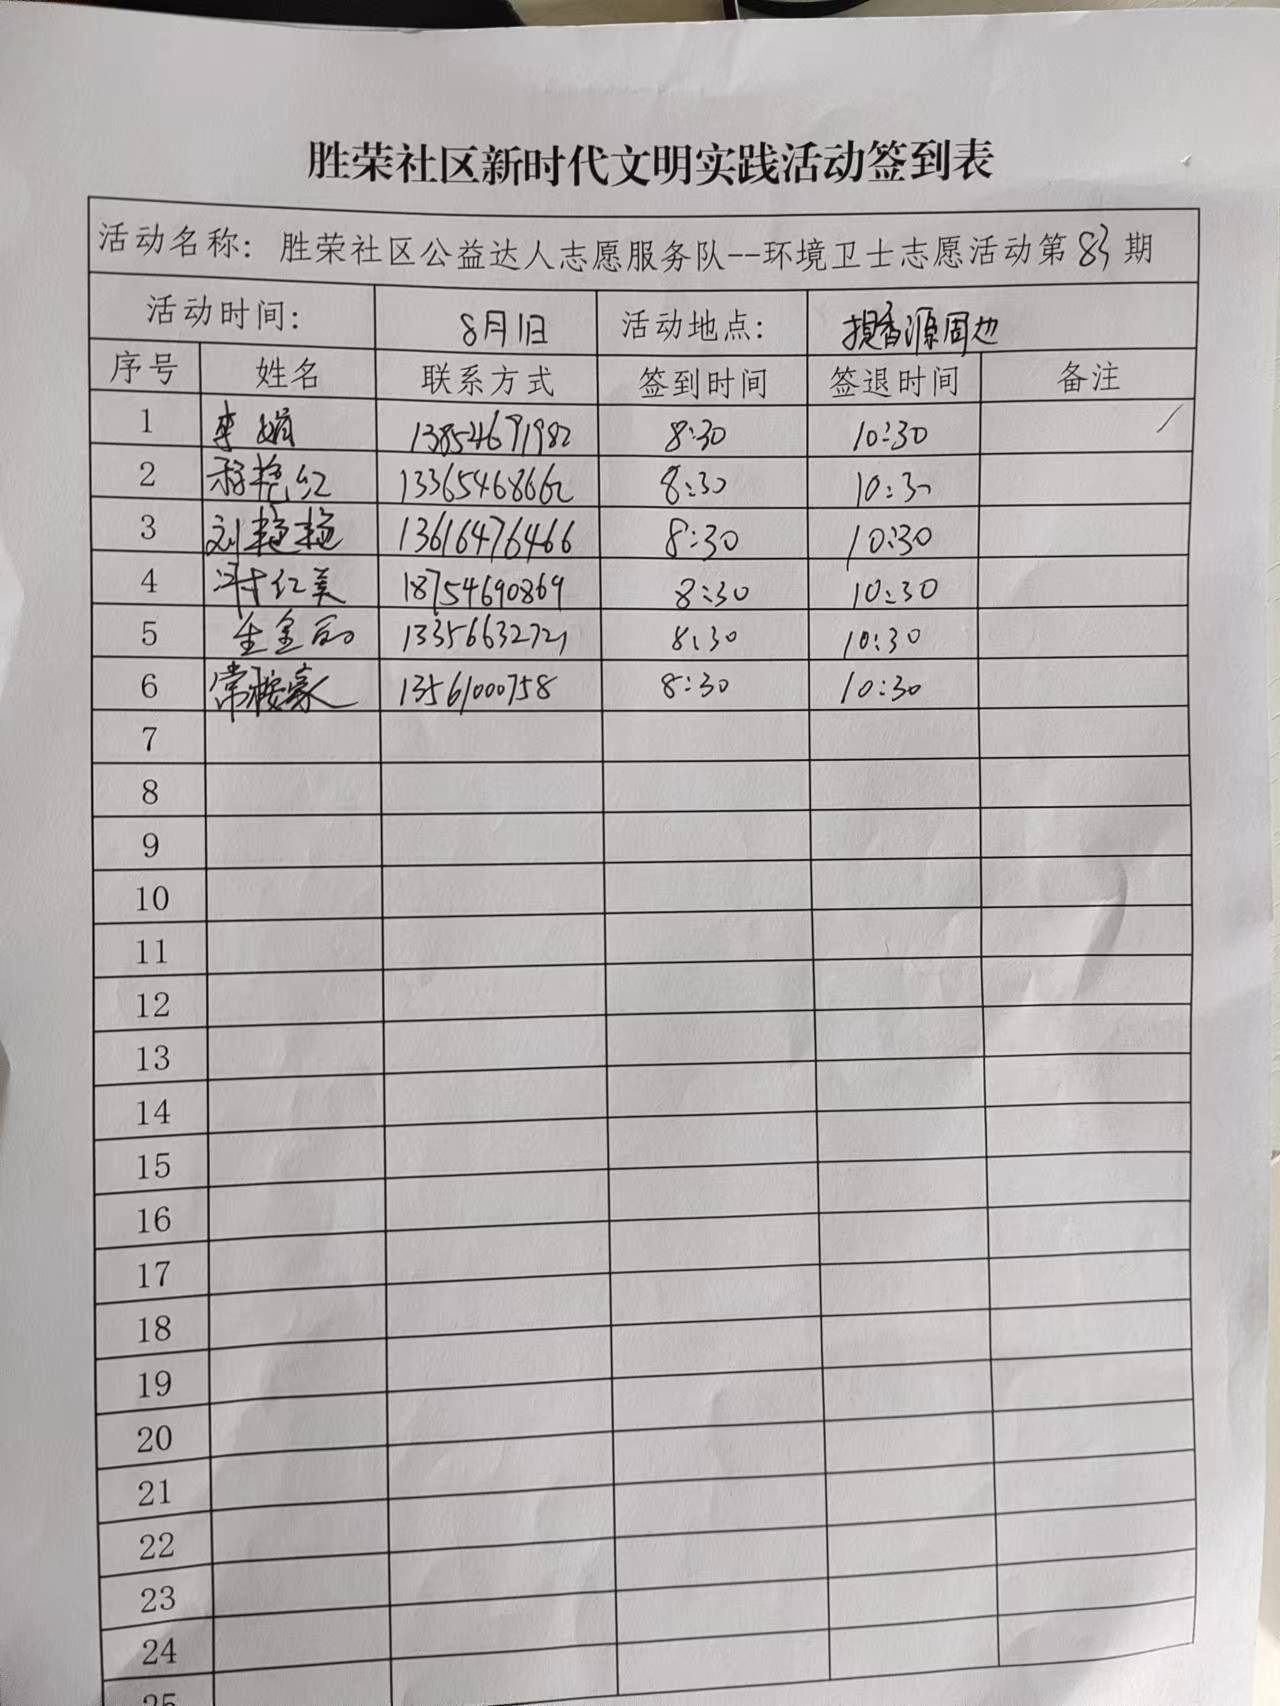 胜荣社区新时代文明实践活动签到表
活动名称: 胜荣社区公益达人志愿服务队--环境卫士志愿活动第83期
活动时间: 8月1日 活动地点: 香源周边
序号 姓名 联系方式 签到时间 签退时间 备注
1 李娟 13854691982 8:30 10:30
2 艳红 13365468662 8:30 10:30
3 刘艳艳 13616476466 8:30 10:30
4 红美 18754690869 8:30 10:30
5 金 13356632721 8:30 10:30
6 常 13561000758 8:30 10:30
7
8
9
10
11
12
13
14
15
16
17
18
19
20
21
22
23
24
25